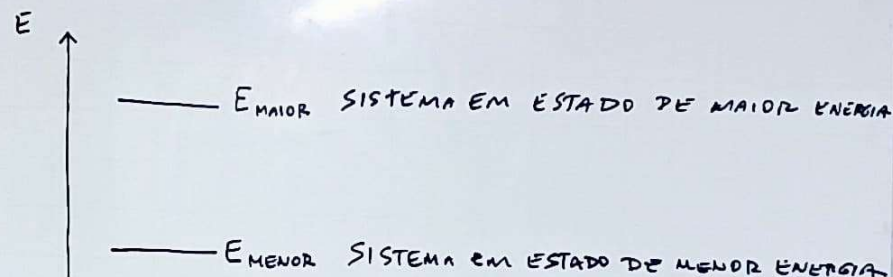 E
E MAIOR SISTEMA EM ESTADO DE MAIOR ENERGIA
E MENOR SISTEMA EM ESTADO DE MENOR ENERGIA